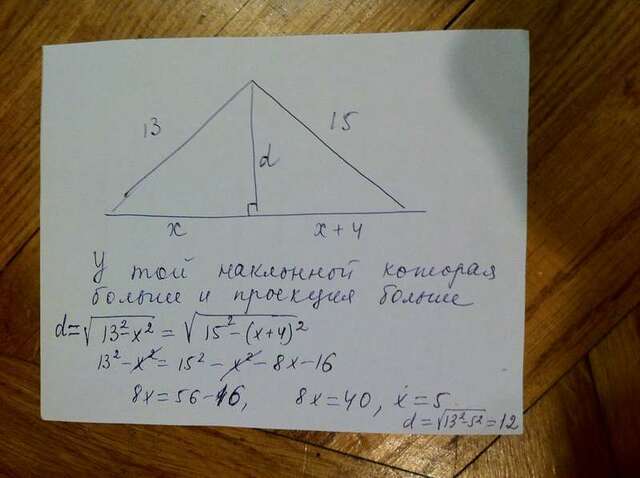 13
15
d
x
x+4
У той наклонной которая
больше и проекция больше
d=√13²-x² = √15²-(x+4)²
13²-x²=15²-x²-8x-16
8x=56-16, 8x=40, x=5
d=√13²-5²=12